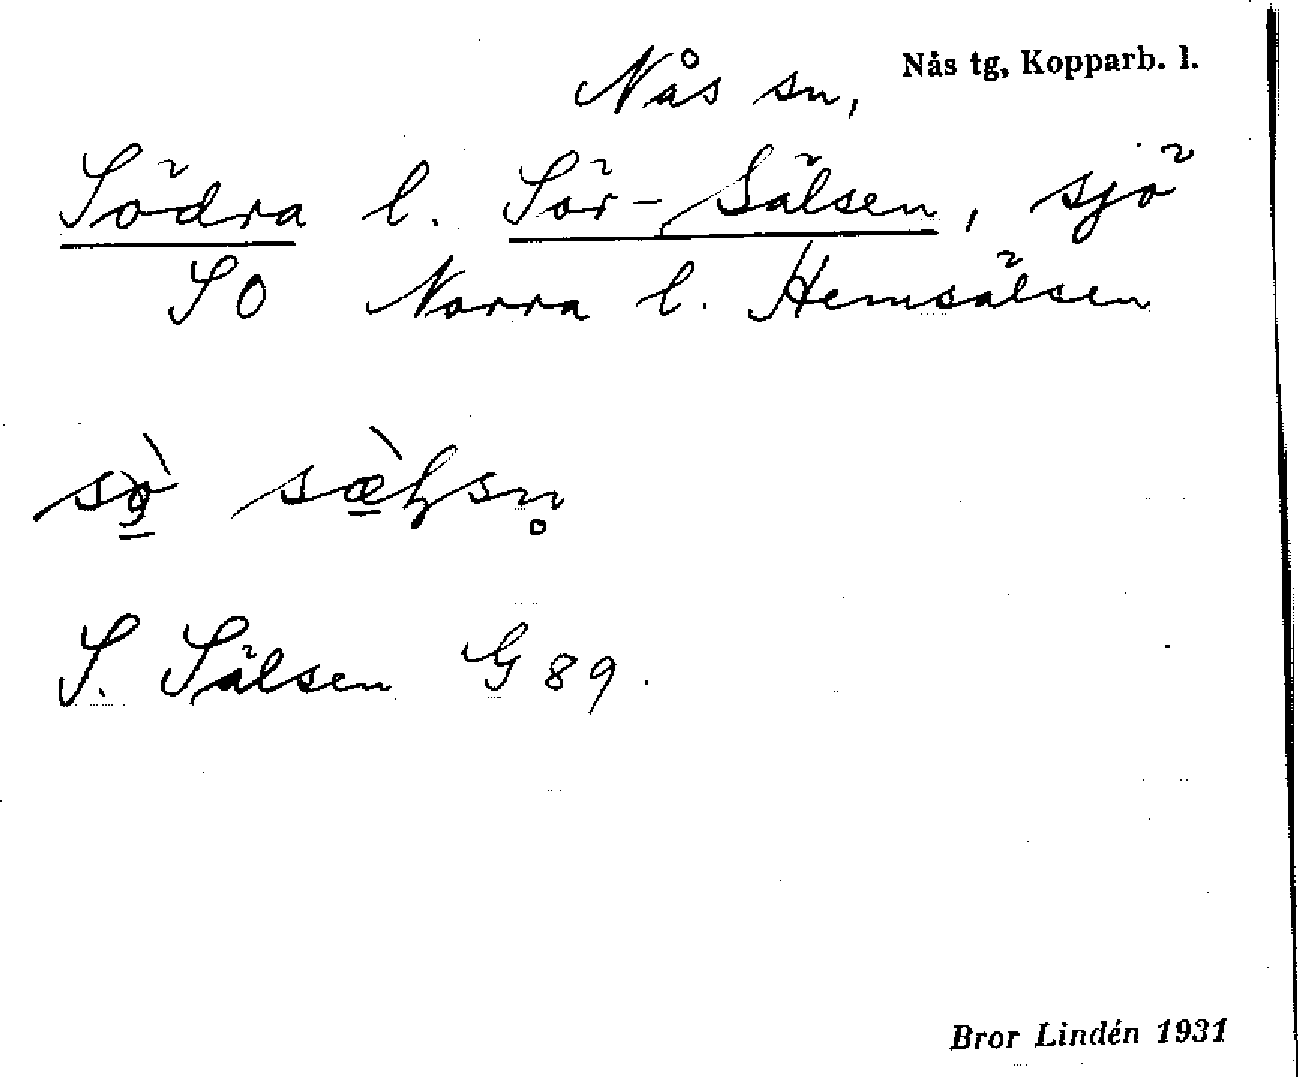 Nås sn, Nås tg, Kopparb. l.
Södra l. Sör-Sälsen, sjö
SO Norra l. Hemsälsen
S. Sälsen G 89.
Bror Lindén 1931